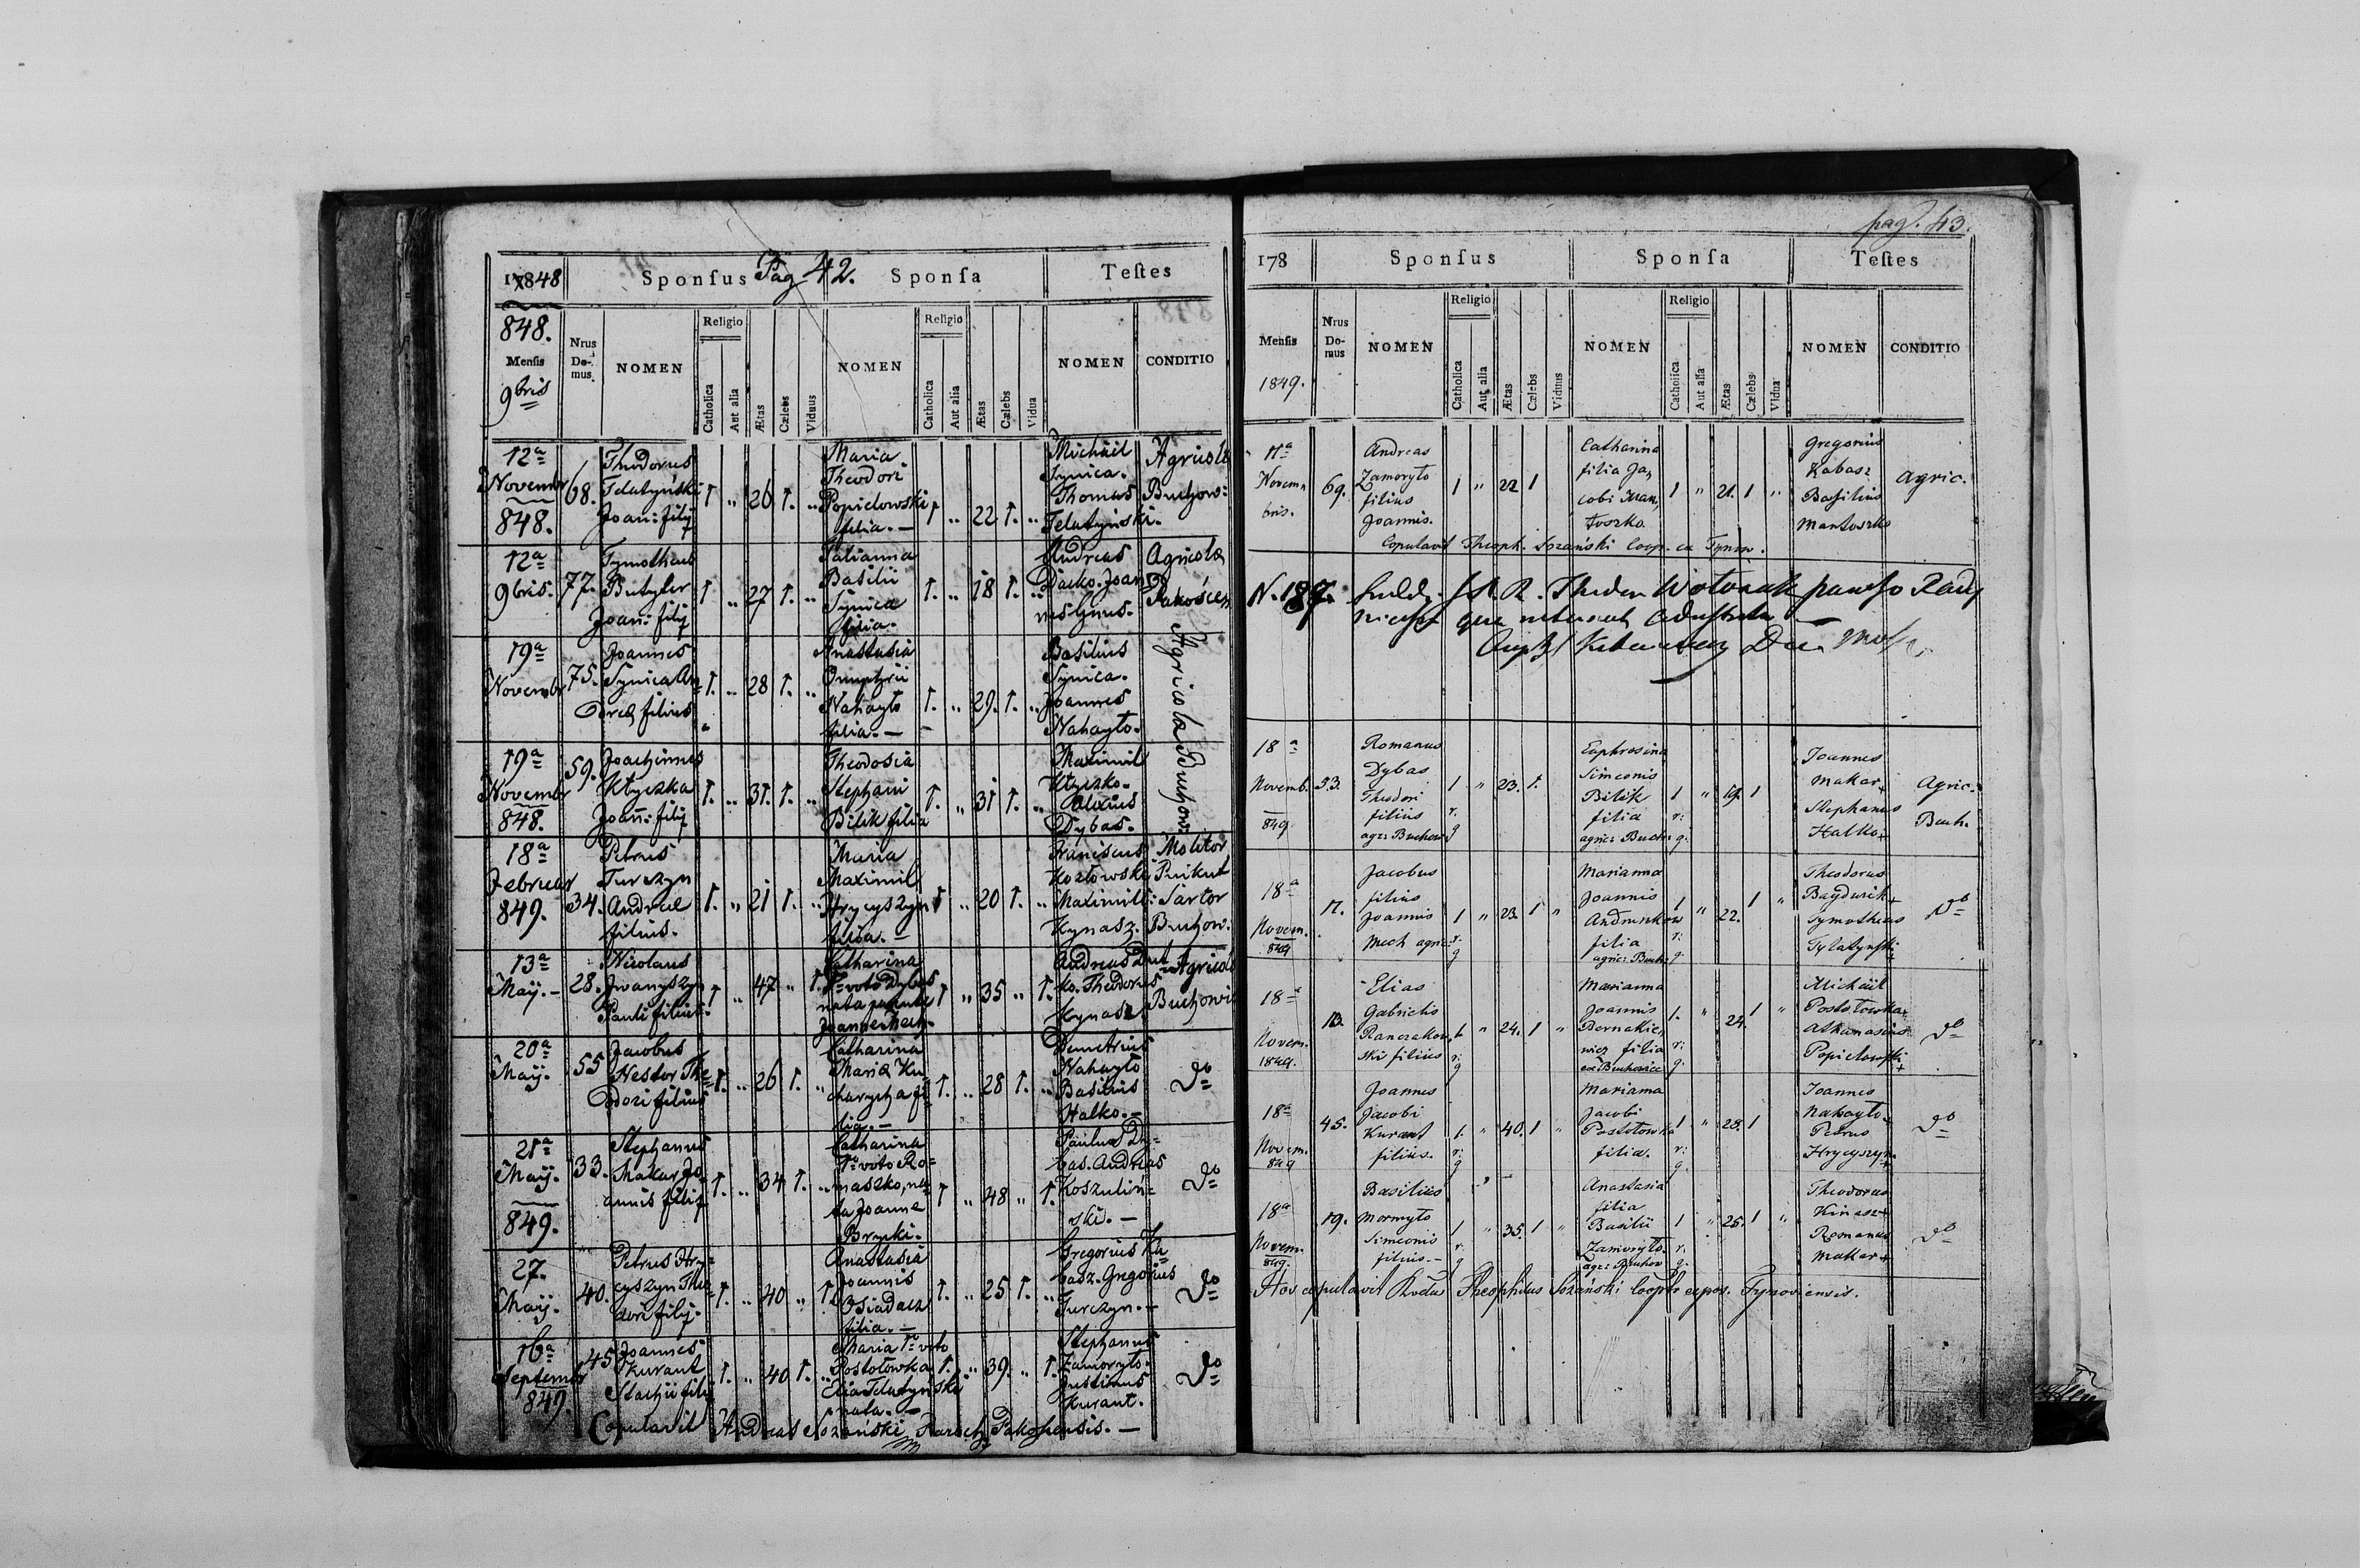 Pag 42.
17848 Sponſus Sponſa Teſtes
848.
Menſis
9bris
Nrus Do-mus.
NOMEN
Religio
Catholica
Aut alia
Ætas
Cælebs
Viduus
NOMEN
Religio
Catholica
Aut alia
Ætas
Cælebs
Vidua
NOMEN
CONDITIO
12a Novembr 848.
68.
Theodorus
Telatyński
Joan: filij
1 „ 26 1. „
Maria
Theodori
Popielowski
filia.—
1 „ 22 1. „
Michäil
Synica.
Thomas
Telatyński.
Agricolæ
Buchow:
12a 9bris.
77.
Tymotheus
Butyter
Joan: filij
1 „ 27 1. „
Tatianna
Basilii
Synica
filia.
1. „ 18 1. „
Andreas
Dacko. Joan
nes
Agricolæ
19a Novembr
75.
Joannes
Synica An=
dreæ filius
1. „ 28 1. „
Anastasia
Onuphrii
Nahayło
filia.—
1. „ 29. 1. „
Basilius
Synica.
Joannes
Nahayło.
Agricolæ Buchow:
19a Novembr 848.
59.
Joachimus
Klyczka
Joan: filij
1. „ 31. 1. „
Theodosia
Stephani
Bilik filia
1. „ 31 1. „
Maximil
Klyczko.
Alexius
Dybas.
18a Februar 849.
34.
Petrus
Turczyn
Andreæ
filius.
1. „ 21 1. „
Maria
Maximil
Hrycyszyn
filia.—
1 „ 20 1. „
Franiscus
Kozłowski
Maximili:
Kynasz.
Molitor
Prikut
Sartor
Buchow.
13a Maij.—
28.
Nicolaus
Jwanyszyn
Pauli filius.
1 „ 47 „ 1.
Catharina
1o voto Dybas
nata
1 „ 35 „ 1.
Andreas Dut
ko. Theodorus
Kynasz
Agricolæ
Buchowic
20a Maij.
55
Jacobus
Nestor The=
odori filius
1. „ 26 1. „
Catharina
Maria Ku
charycha fi
lia.—
1. „ 28 1. „
Demetrius
Nahayło
Basilius
Halko.—
do
21a Maij. 849.
33.
Stephanus
Makar Jo
annis filij
1. „ 34 1. „
Catharina
1o voto Ro=
maszko, na
ta Joanne
Brycki.
1 „ 48 „ 1.
Paulus Dy=
bas. Andreas
Koszuliń=
ski.—
do
27. Maij.
40.
Petrus Hry=
cyszyn Theo
dori filij.
1. „ 40 „ 1
Anastasia
Joannis
Osiadacz
filia.—
1. „ 25 1. „
Gregorius Ka
basz. Gregorius
Turczyn.—
do
16a Septembr 849.
45
Joannes
Kurant
Stachii filij
1. „ 40 1. „
Maria 1o voto
Postołowka
Elia Telatyński
nata.—
1. „ 39. „ 1.
Stephanus
Zamoryło.
Justinus
Kurant.
do
Copulavit Andreas Sozański Paroch Pakoscensis.—
pag. 43.
178 Sponſus Sponſa Teſtes
Menſis
1849.
Nrus Do-mus
NOMEN
Religio
Catholica
Aut alia
Ætas
Cælebs
Viduus
NOMEN
Religio
Catholica
Aut alia
Ætas
Cælebs
Vidua
NOMEN
CONDITIO
11a Novem bris.
69.
Andreas
Zamoryło
filius
Joannis.
1 „ 22 1
Catharina
filia Ja,
cobi Man,
toszko.
1 „ 21. 1 „
Gregorius
Kabasz
Basilius
Mantoszko
Agric.
Copulavit Theoph. Sozański Coop. ex Tynow.
18a Novemb. 849
53.
Romanus
Dybas
Theodori
filius
agr: Buchow
1 „ 23. 1.
r. g
Euphrosina
Simeonis
Bilik
filia
agric: Buch:
1 „ 19. 1
r: g.
Joannes
Makar +
Stephanus
Halko +
Agric.
Buch.
18a Novem. 849
17.
Jacobus
filius
Joannis
Mech agric:
1 „ 23. 1 „
r. g
Marianna
Joannis
Andrunkow
filia
agric: Buch:
1 „ 22. 1 „
r: g.
Theodorus
Bagdurik +
Tymotheus
Tylatynski
do
18a Novem. 1849.
Elias
Gabrielis
filius
1 „ 24. 1 „
r: g
Marianna
Joannis
Bernakie,
wicz filia
ex Buchowice
1. „ 24. 1 „
r: g.
Michäil
Postołowka +
Athanasius
Popielowski +
do
18a Novem. 849
45.
Joannes
Jacobi
Kurant
filius.
1. „ 40. 1 „
r: g
Marianna
Jacobi
Postołowka
filia.
1 „ 28. 1
r: g.
Joannes
Nahayło +
Petrus
Hrycyszyn +
do
18a Novem. 849.
19.
Basilius
Mormyło
Simeonis
filius.—
1 „ 35. 1 „
r. g
Anastasia
filia
Basilii
Zamoryło.
agr: Buchow
1 „ 25. 1 „
r. g.
Theodorus
Kinasz +
Romanus
Makar +
do
Hos copulavit Theophilus Sozański Cooptor expos. Tynoviensis.